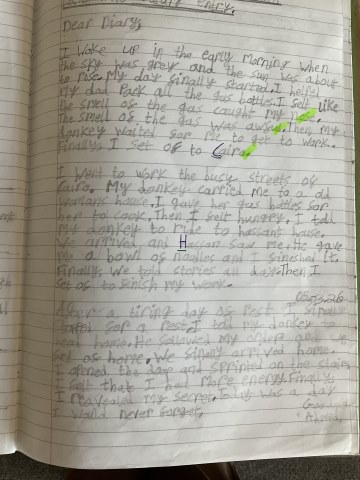 Entry,
Dear Diary,
I Woke up in the early Morning when
the sky was grey and the sun was about
to rise. My day finally started. I helped
my dad Pack all the gas bottles. I felt like
the smell of the gas caught my
The smell of the gas was Then my
donkey waited for me to get to work.
Finally I set of to Cairo.
I went to work the busy streets of
Cairo. My donkey carried me to a old
womans house. I gave her gas bottles for
her to cook. Then I felt hungry. I told
My donkey to ride to hassans house.
We arrived and Hassan saw me. He gave
me a bowl of noodles and I fineshed it.
Finally, we told stories all day. Then I
set of to finish my work.
After a tiring day of rest I finally
for a rest. I told my donkey to
head home. He
set of home. We finally arrived home.
I opened the door and sprinted on the stairs
I felt that I had more energy. Finally,
I revealed my secret. Today was a day
I would never forget.
From
Ahmed,